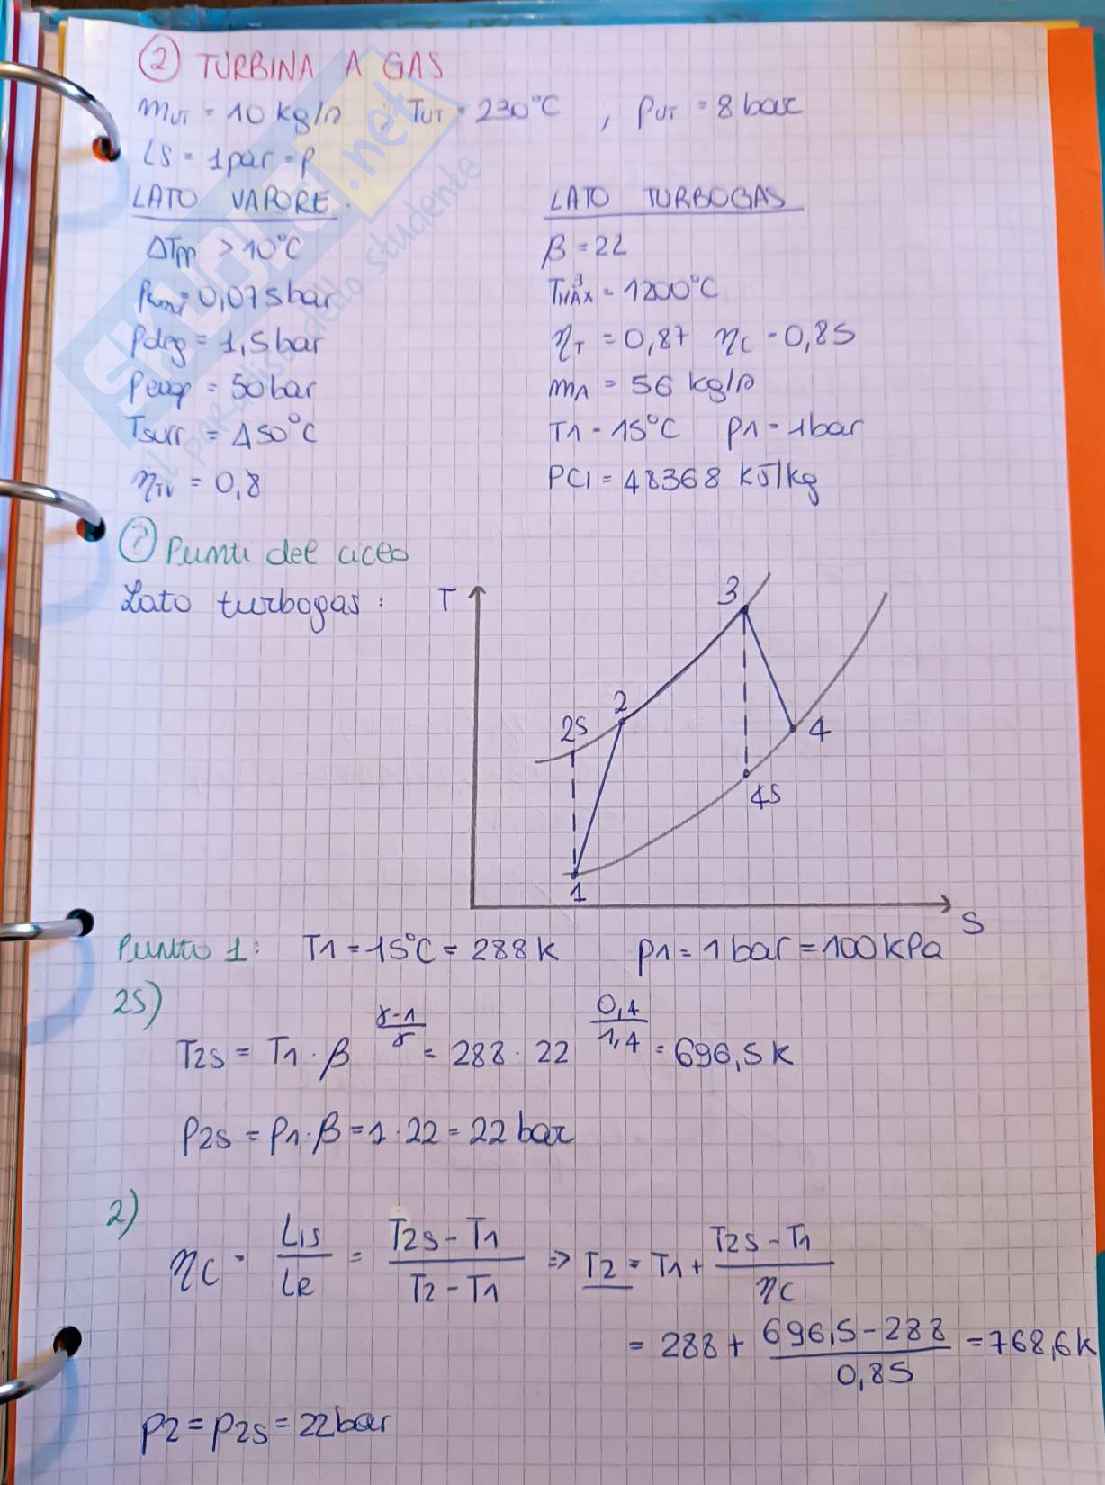 ② TURBINA A GAS
mut = 10 kg/s , Tut = 230°C , put = 8 bar
LS = 1 par = p
LATO VAPORE.
ΔTpp > 10°C
= 0,075 bar
pdeg = 1,5 bar
pevap = 50 bar
Tsurr = 450°C
ηTV = 0,8
LATO TURBOGAS
β = 22
TMAX = 1200°C
ηT = 0,87 ηC = 0,85
mA = 56 kg/s
T1 = 15°C p1 = 1 bar
PCI = 48368 kJ/kg
① Punti del ciclo
Lato turbogas:
T
3
2
2S
4
4S
1
S
Punto 1: T1 = 15°C = 288 K p1 = 1 bar = 100 kPa
2S)
T2S = T1 · β^((γ-1)/γ) = 288 · 22^(0,4/1,4) = 696,5 K
p2S = p1 · β = 1 · 22 = 22 bar
2)
ηC = Lis/LR = (T2S - T1)/(T2 - T1) => T2 = T1 + (T2S - T1)/ηC
= 288 + (696,5 - 288)/0,85 = 768,6 K
p2 = p2S = 22 bar